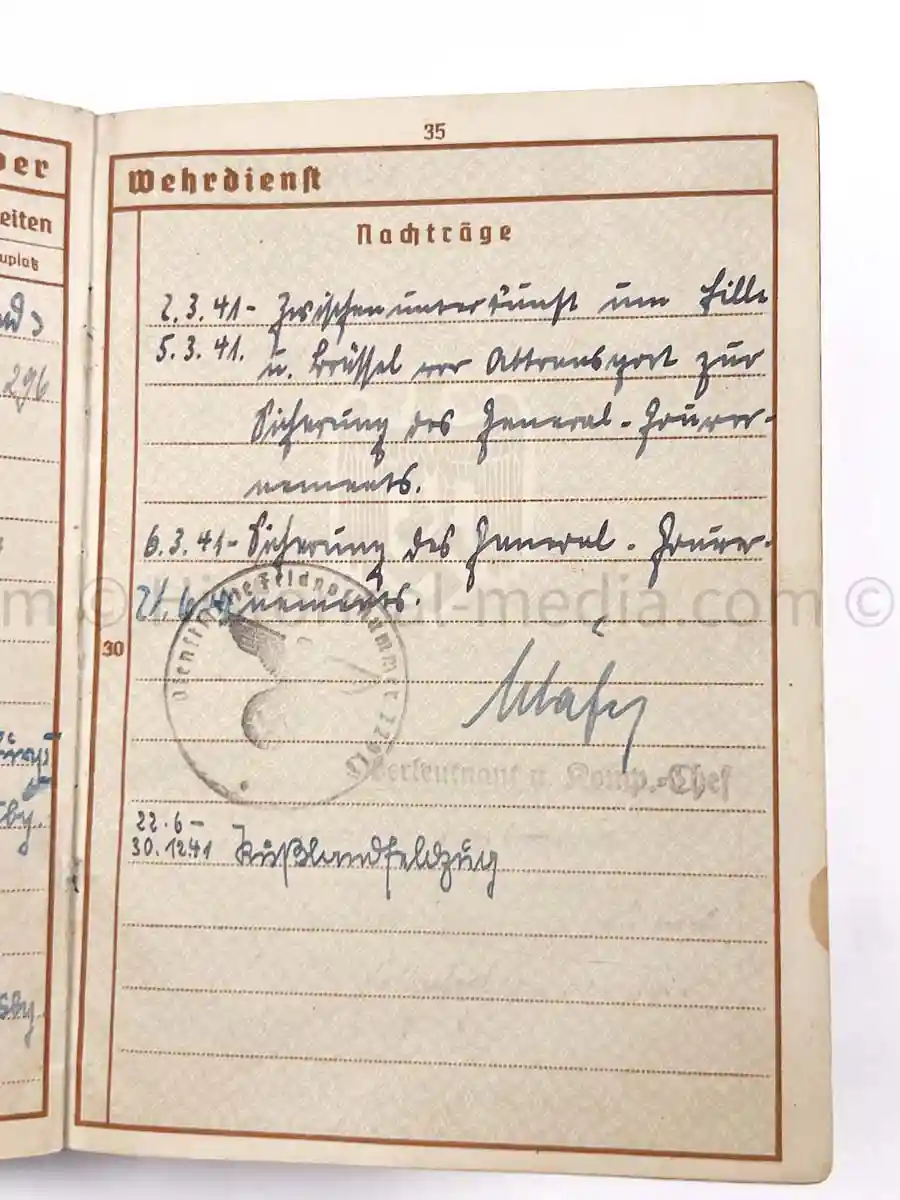 35
Wehrdienst
Nachträge
2.3.41- Zwischenunterkunft um Lille
5.3.41. u. Brüssel vor Abtransport zur
Sicherung des General-Gouver-
nements.
6.3.41- Sicherung des General-Gouver-
21.6.41 nements.
30
Dienststelle Feldpostnummer
Oberleutnant u. Komp.-Chef
22.6-
30.12.41 Rußlandfeldzug
eiten
uplatz
296
© Historical-media.com ©